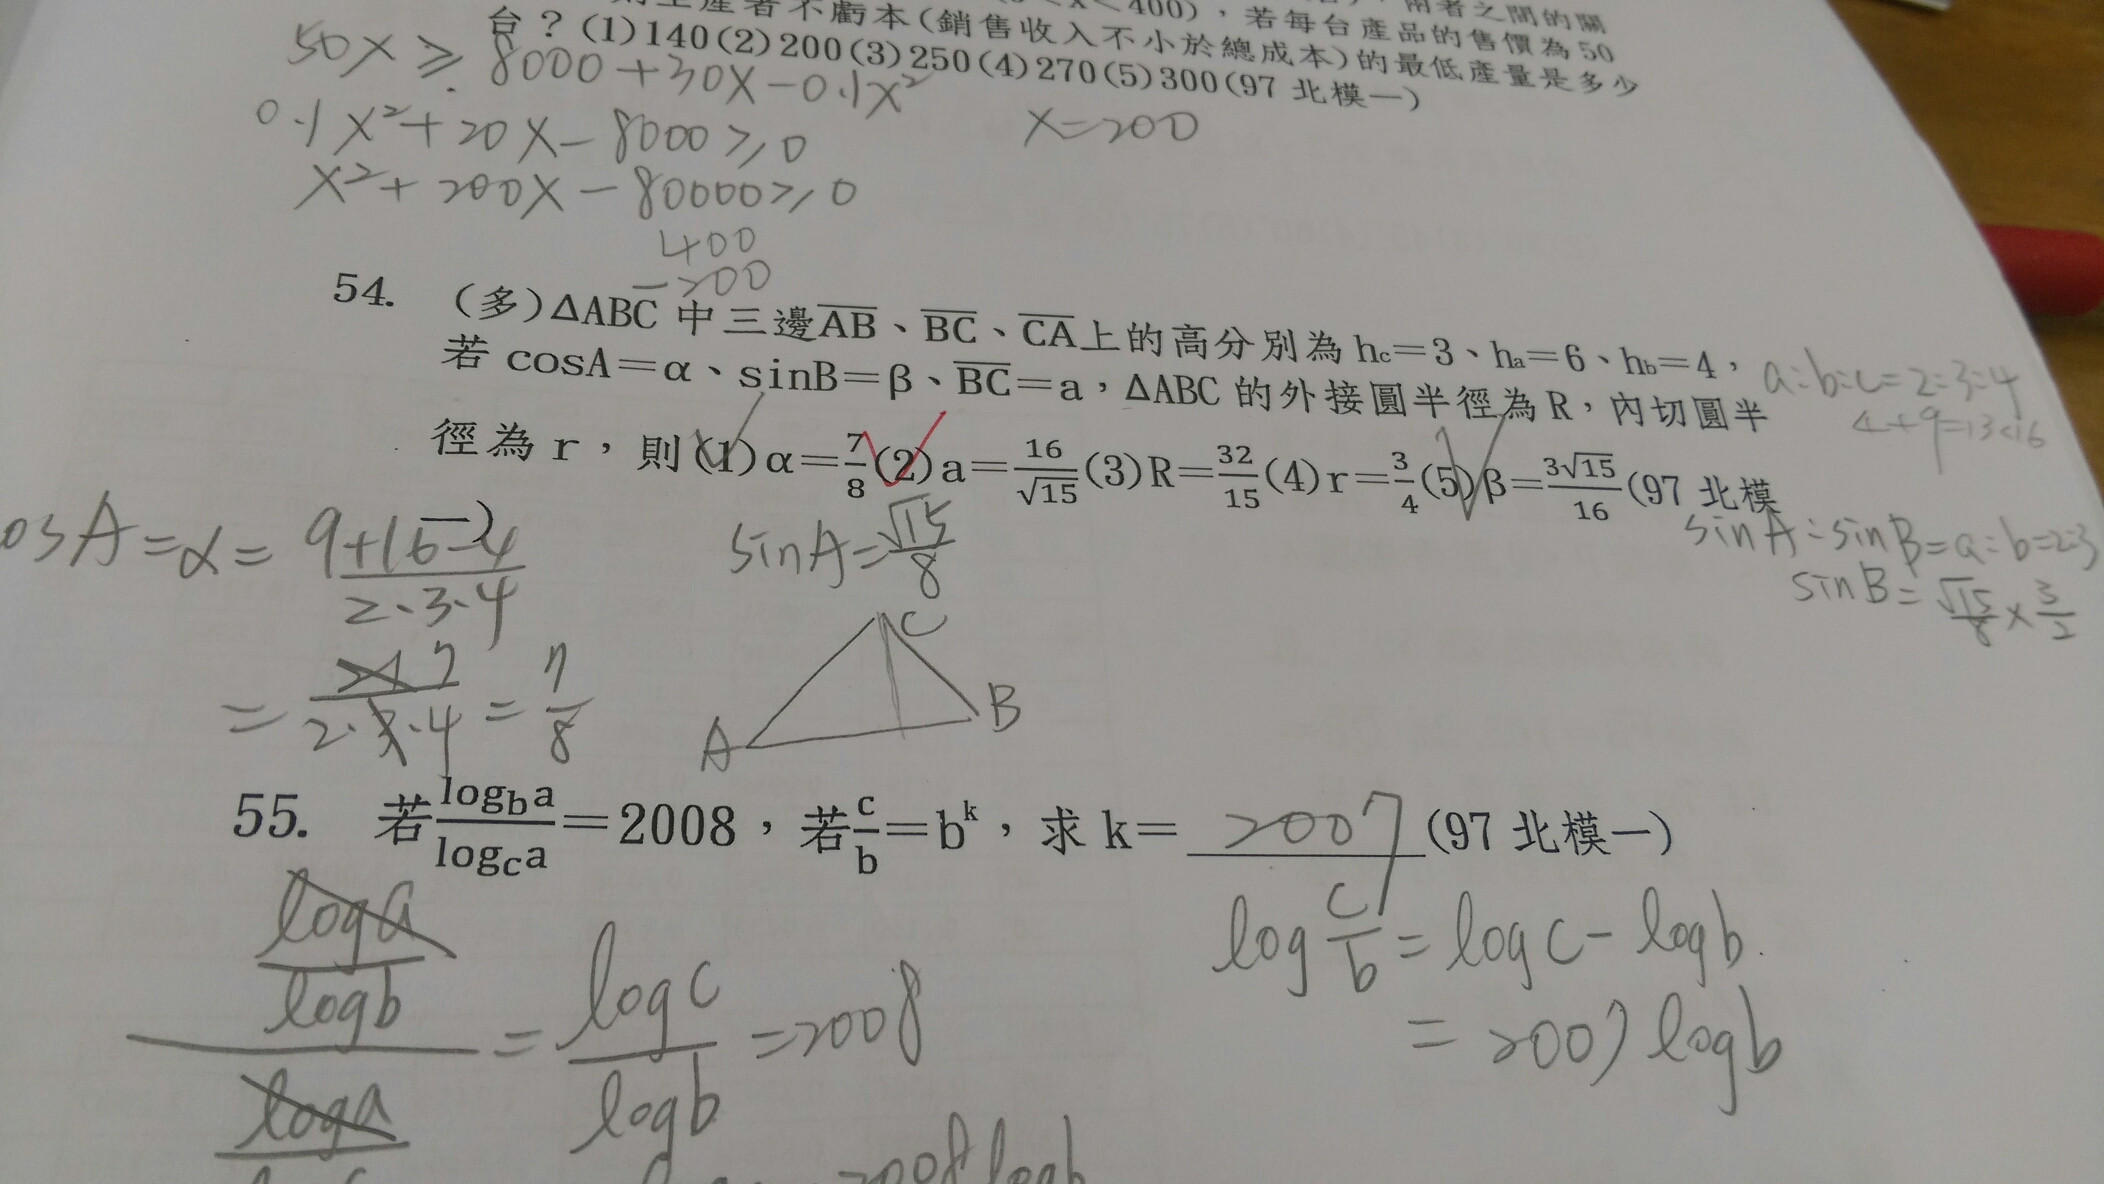 400)，若每台產品的售價為50
台？(1)140(2)200(3)250(4)270(5)300(97 北模一)
不虧本(銷售收入不小於總成本)的最低產量是多少
50x ≥ 8000+30x-0.1x²
0.1x²+20x-8000≥0
x=200
x²+200x-80000≥0
400
-200
54. (多)ΔABC 中三邊AB、BC、CA上的高分別為 hc=3、ha=6、hb=4，
若 cosA=α、sinB=β、BC=a，ΔABC 的外接圓半徑為 R，內切圓半
徑為 r，則(1)α=7/8(2)a=16/√15(3)R=32/15(4)r=3/4(5)β=3√15/16(97 北模
a:b:c=2:3:4
4+9=13<16
osA=α=(9+16-4)/(2·3·4)
sinA=√15/8
sinA:sinB=a:b=2:3
sinB=√15/8×3/2
=7/(2·4)=7/8
C
A
B
55. 若log_b a/log_c a=2008，若c/b=b^k，求 k=2007(97 北模一)
loga/logb
loga
=logc/logb=2008
log c/b=logc-logb
=2007logb
2008logb